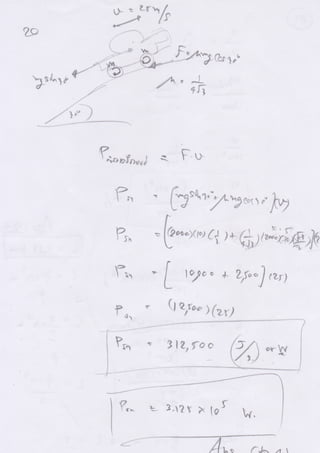 20
u = 25 m/s
F = μmg cos30°
mg sin30°
m
m
μ = 1/4√3
30°
P = F.U
Pin = [mg sin30° + μmg cos30°](v)
Pin = [(2000)(10)(1/2) + (1/4√3)(2000)(10)(√3/2)](2
Pin = [10,000 + 2,500] (25)
Pin = (12,500)(25)
Pin = 312,500 (J/s) or W
Pin = 3.125 × 10⁵ W.